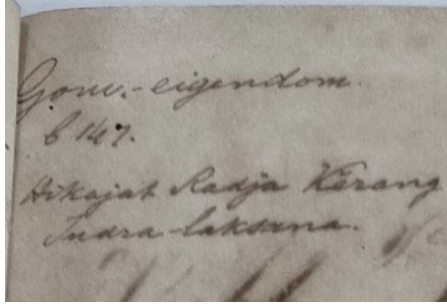 Gouv.-eigendom.
b 147.
Hikajat Radja Kĕrang
Indra-laksana.